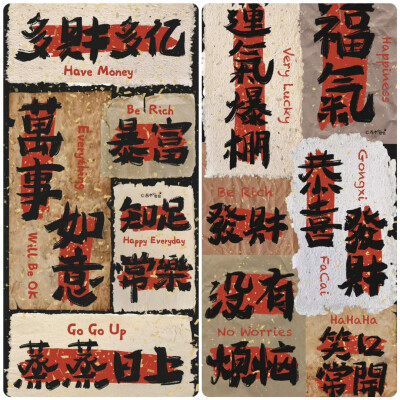 多財多亿
Have Money
萬事
如意
Everything
Will Be OK
Be Rich
暴富
知足
Happy Everyday
常樂
Go Go Up
蒸蒸日上
運氣爆棚
Very Lucky
福氣
Happiness
Be Rich
發財
恭喜
發財
Gongxi
FaCai
没有
No Worries
煩恼
HaHaHa
笑口
常開